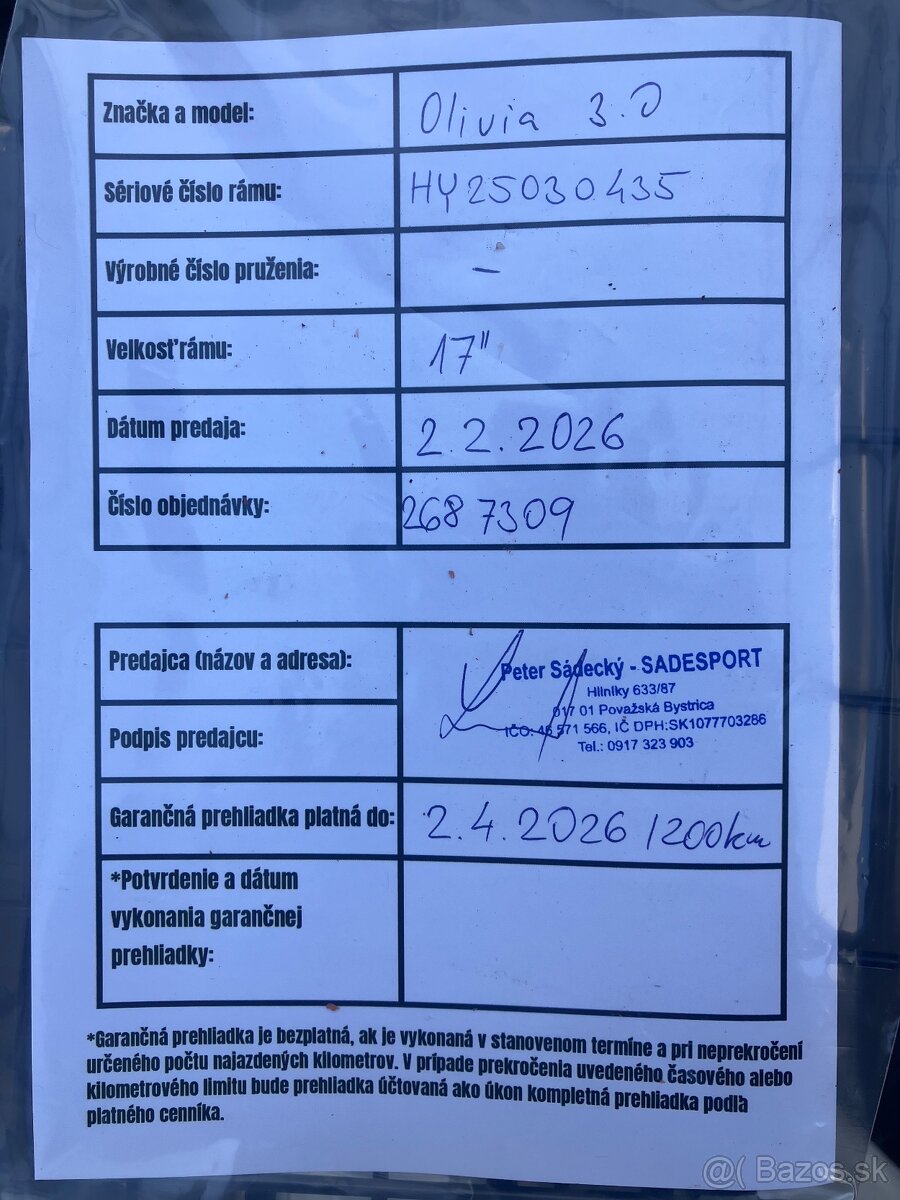 Značka a model: Olivia 3.0
Sériové číslo rámu: HY25030435
Výrobné číslo pruženia: -
Velkosť rámu: 17"
Dátum predaja: 2.2.2026
Číslo objednávky: 2687309
Predajca (názov a adresa):
Peter Sádecký - SADESPORT
Hliníky 633/87
017 01 Považská Bystrica
IČO: 46 571 566, IČ DPH:SK1077703286
Tel.: 0917 323 903
Podpis predajcu:
Garančná prehliadka platná do: 2.4.2026 1200km
*Potvrdenie a dátum
vykonania garančnej
prehliadky:
*Garančná prehliadka je bezplatná, ak je vykonaná v stanovenom termíne a pri neprekročení
určeného počtu najazdených kilometrov. V prípade prekročenia uvedeného časového alebo
kilometrového limitu bude prehliadka účtovaná ako úkon kompletná prehliadka podla
platného cenníka.
@( Bazos.sk